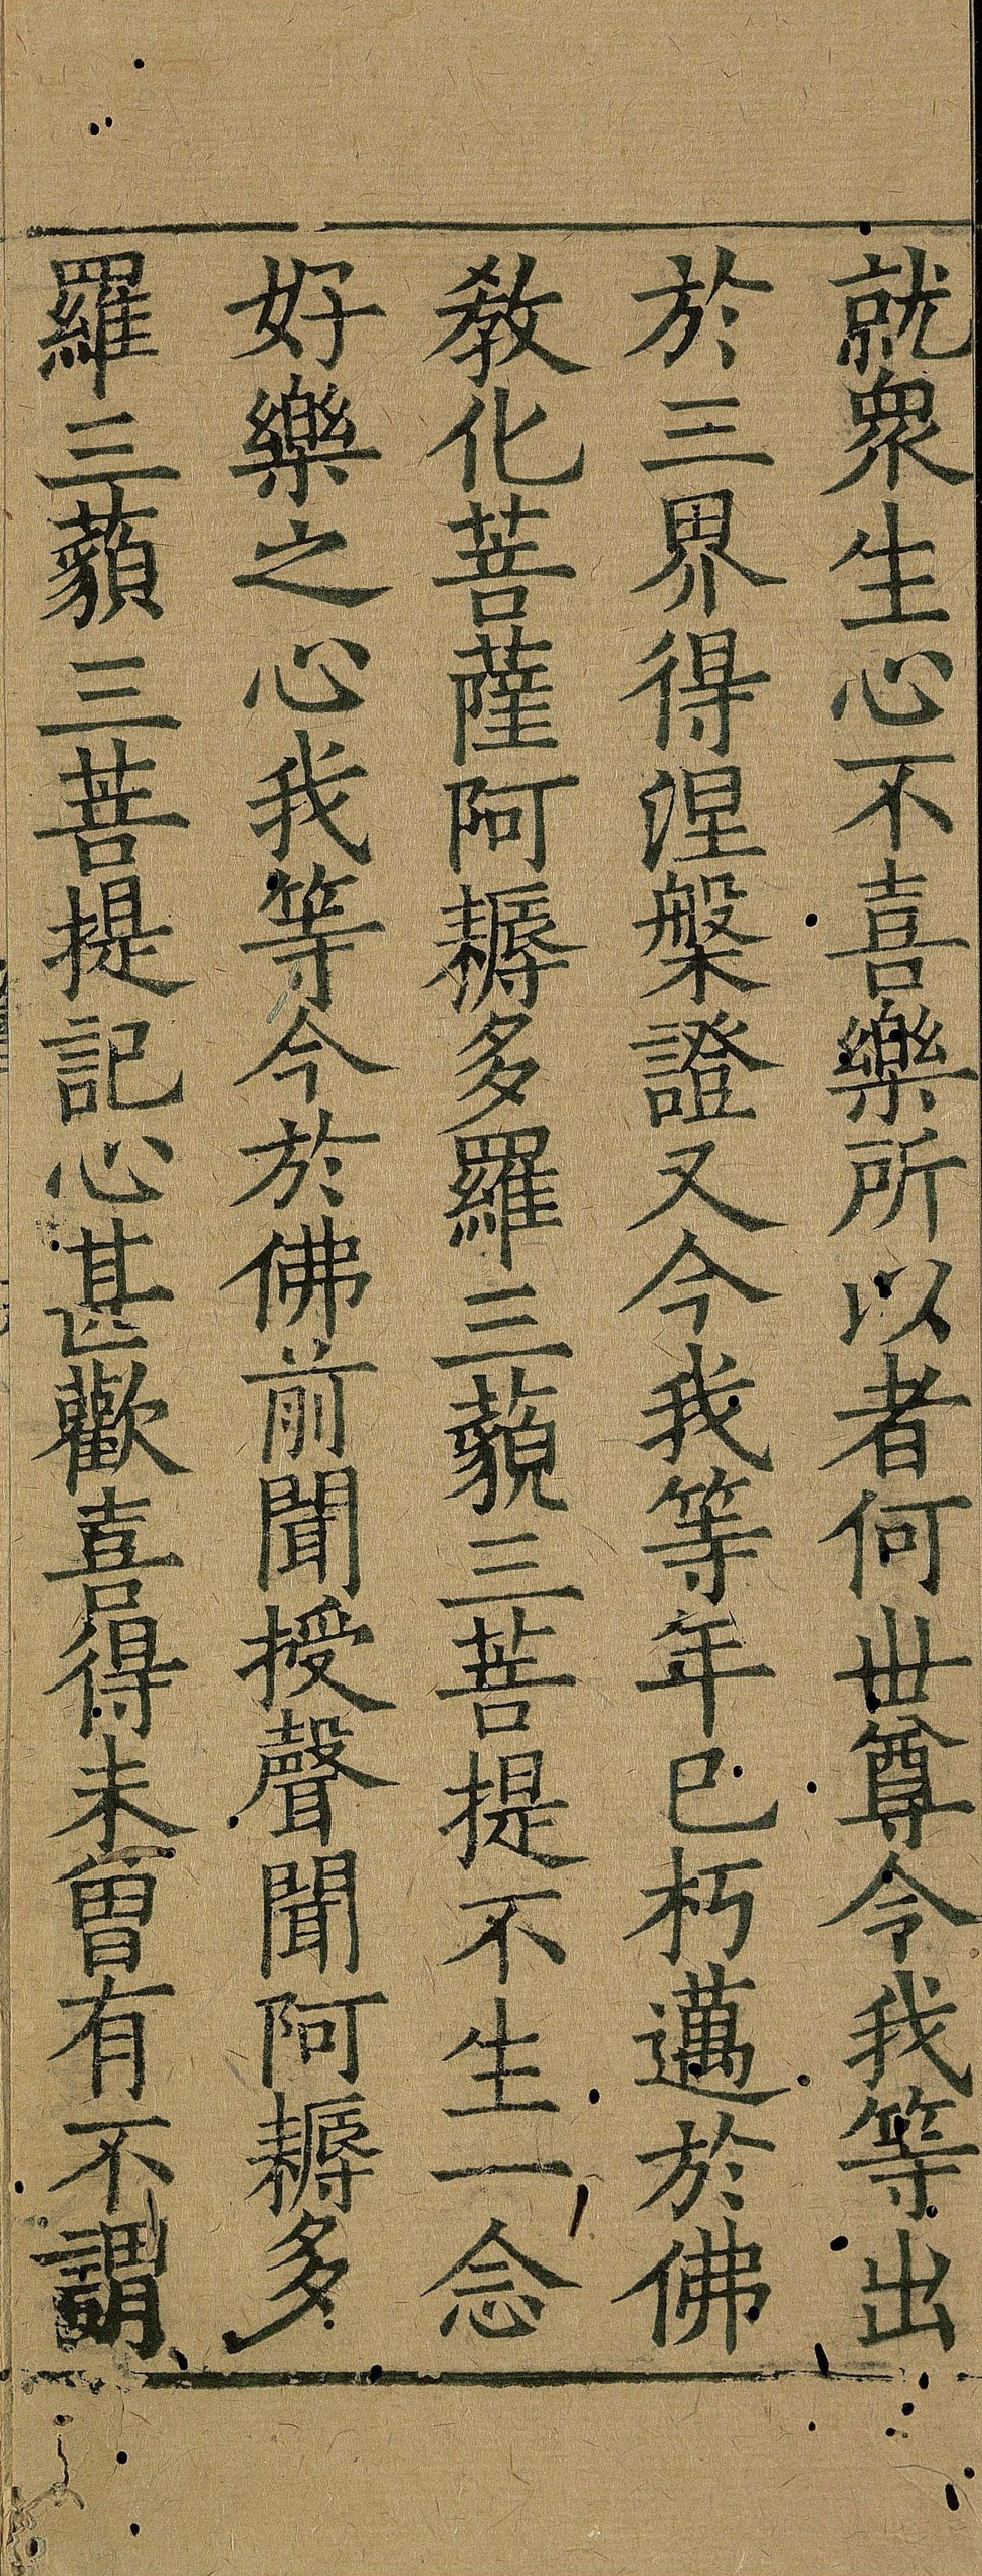 就衆生心不喜樂所以者何世尊令我等出
於三界得涅槃證又今我等年已朽邁於佛
教化菩薩阿耨多羅三藐三菩提不生一念
好樂之心我等今於佛前聞授聲聞阿耨多
羅三藐三菩提記心甚歡喜得未曾有不謂